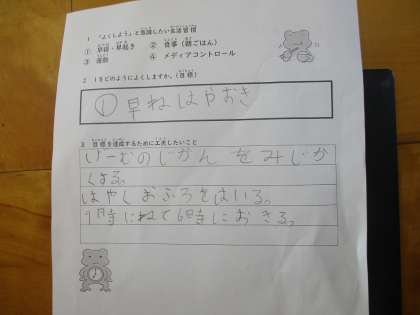 1 「よくしよう」と意識したい生活習慣
① 早寝・早起き ② 食事(朝ごはん)
③ 運動 ④ メディアコントロール
2 1をどのようによくしますか。(目標)
① 早ねはやおき
3 目標を達成するために工夫したいこと
げーむのじかんをみじか
くする。
はやくおふろをはいる。
9時にねて6時におきる。